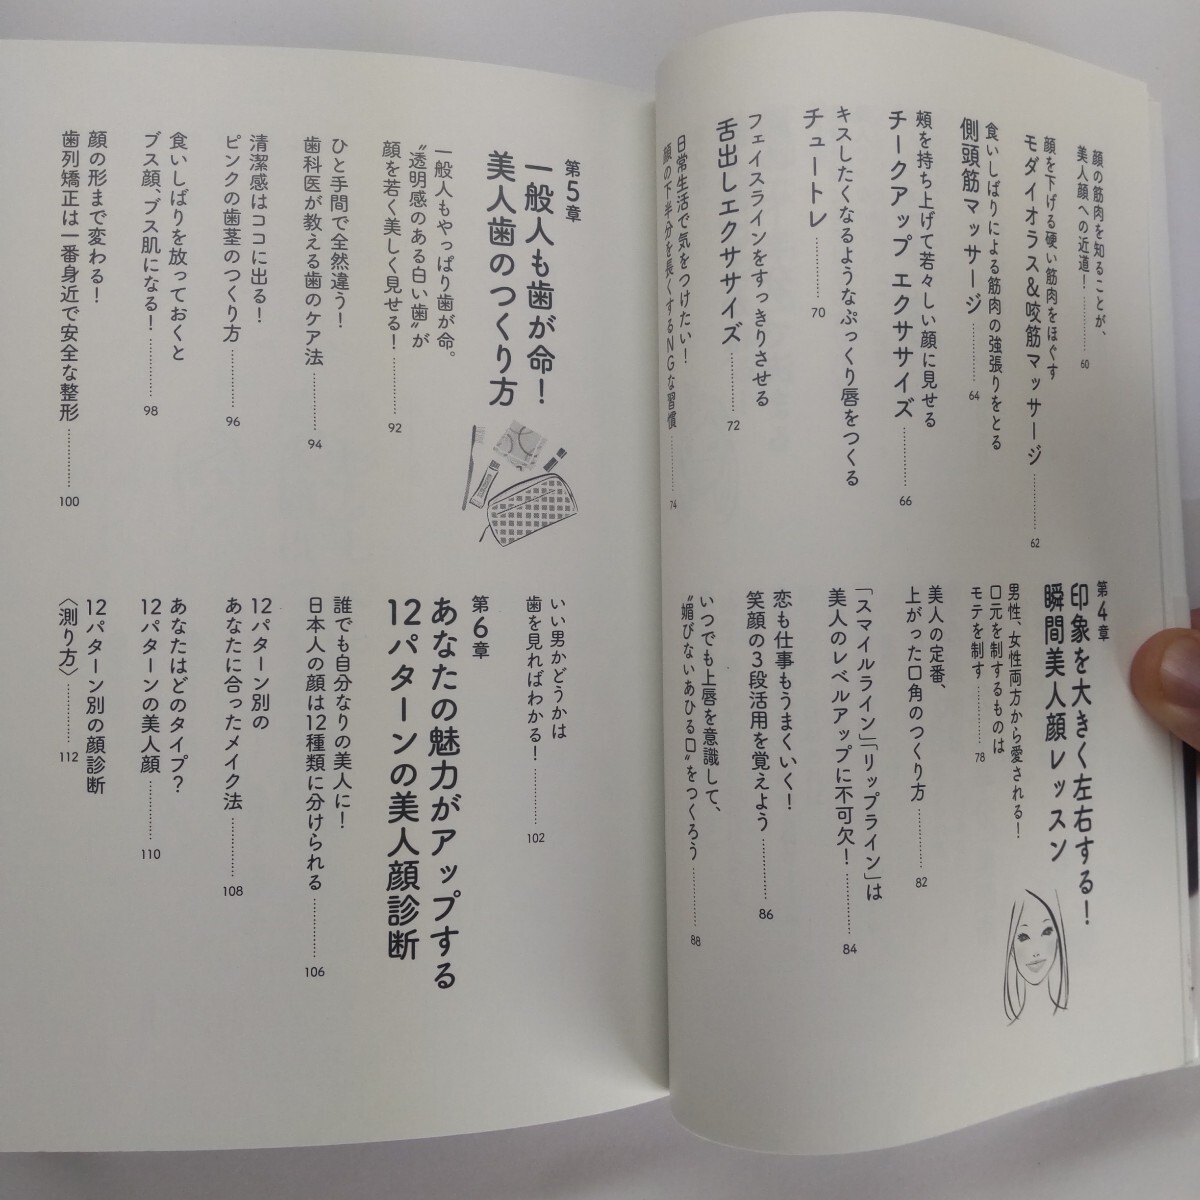 顔の筋肉を知ることが、
美人顔への近道！
60
顔を下げる硬い筋肉をほぐす
モダイオラス&咬筋マッサージ
62
食いしばりによる筋肉の強張りをとる
側頭筋マッサージ
64
頬を持ち上げて若々しい顔に見せる
チークアップ エクササイズ
66
キスしたくなるようなぷっくり唇をつくる
チュートレ
70
フェイスラインをすっきりさせる
舌出しエクササイズ
72
日常生活で気をつけたい！
顔の下半分を長くするNGな習慣
74
第4章
印象を大きく左右する！
瞬間美人顔レッスン
男性、女性両方から愛される！
口元を制するものは
モテを制す
78
美人の定番、
上がった口角のつくり方
82
「スマイルライン」「リップライン」は
美人のレベルアップに不可欠！
84
恋も仕事もうまくいく！
笑顔の3段活用を覚えよう
86
いつでも上唇を意識して、
〝媚びないあひる口〟をつくろう
88
第5章
一般人も歯が命！
美人歯のつくり方
一般人もやっぱり歯が命。
〝透明感のある白い歯〟が
顔を若く美しく見せる！
92
ひと手間で全然違う！
歯科医が教える歯のケア法
94
清潔感はココに出る！
ピンクの歯茎のつくり方
96
食いしばりを放っておくと
ブス顔、ブス肌になる！
98
顔の形まで変わる！
歯列矯正は一番身近で安全な整形
100
いい男かどうかは
歯を見ればわかる！
102
第6章
あなたの魅力がアップする
12パターンの美人顔診断
誰でも自分なりの美人に！
日本人の顔は12種類に分けられる
106
12パターン別の
あなたに合ったメイク法
108
あなたはどのタイプ？
12パターンの美人顔
110
12パターン別の顔診断
〈測り方〉
112